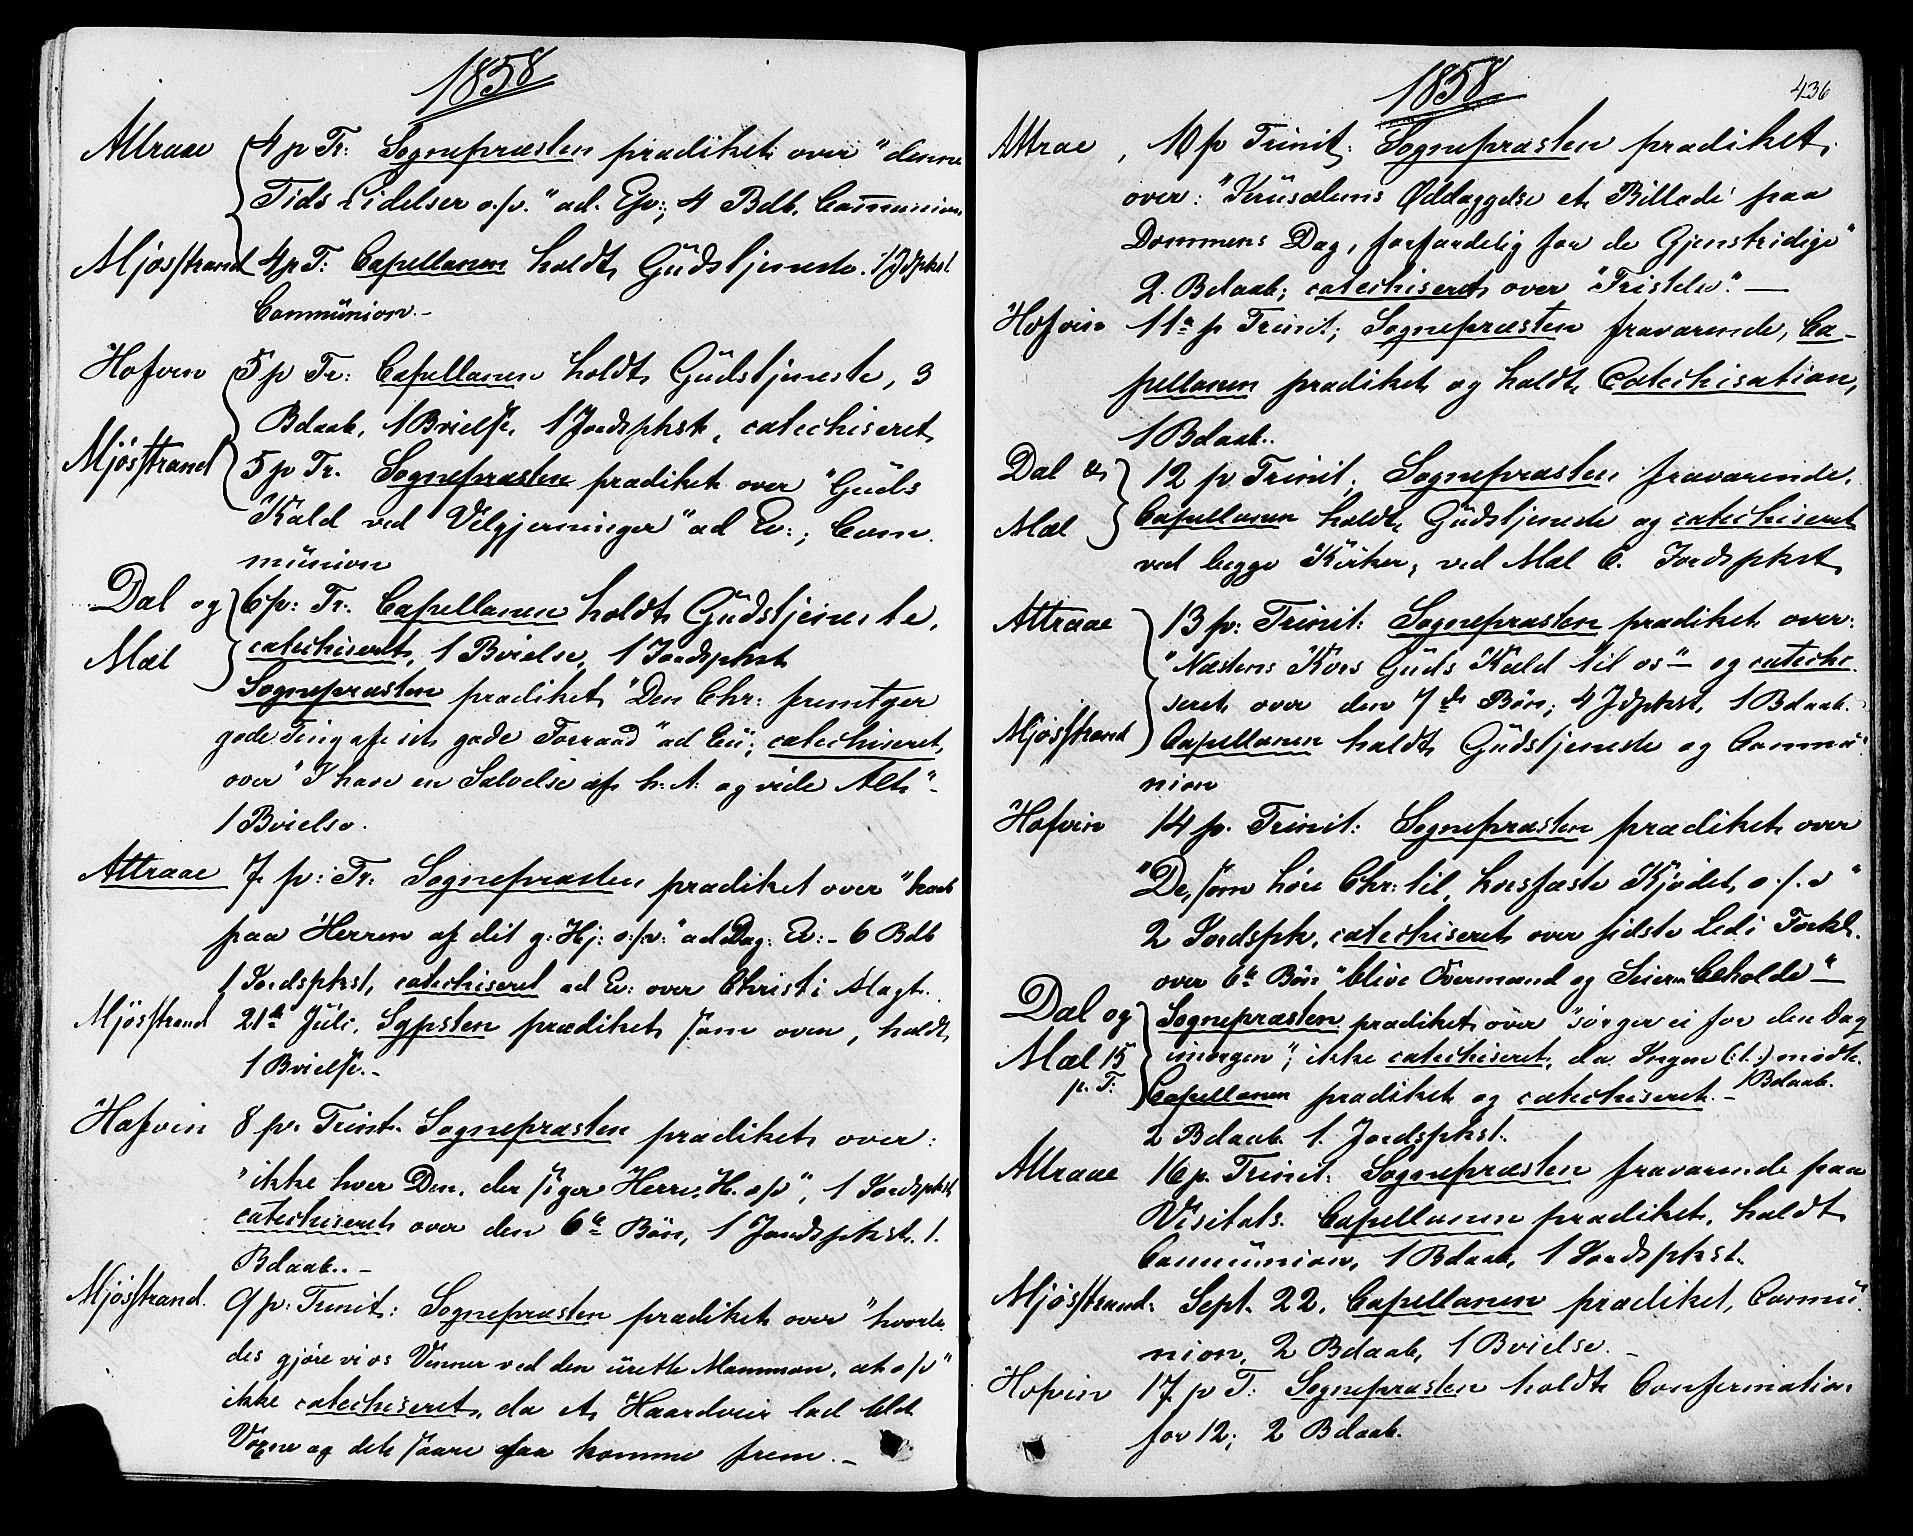 1858
Attraae 4 p Tr: Sognepræsten prædiket over "denne
Tids Lidelser o.s.v." ad. Ep:; 4 Bdb, Communion.
Mjösstrand 4 p T: Capellanen holdt Gudstjeneste. 1 Jdpkst
Communion.-
Hofvin 5 p Tr: Capellanen holdt Gudstjeneste, 3
Bdaab, 1 Bvielse, 1 Jordspkst, catechiseret
Mjösstrand 5 p Tr. Sognepræsten prædiket over "Guds
Kald ved Velgjerninger" ad Ev:; Com
munion
Dal og 6 p: Tr: Capellanen holdt Gudstjeneste,
Mæl catechiseret, 1 Bvielse, 1 Jordspkst
Sognepræsten prædiket "Den Chr: fremtger
gode Ting af sit gode Forraad" ad Ev; catechiseret
over "I have en Salvelse af h. A. og vide Alt"-
1 Bvielse.
Attraae 7. p: Tr. Sognepræsten prædiket over "haab
paa Herren af dit g: Hj: o:s:v:" ad Dag: Ev:- 6 Bdb
1 Jordspkst, catechiseret ad Ev: over Christi Magt.
Mjösstrand 21de Juli, Sgpsten prædiket som oven, holdt
1 Bvielse.-
Hofvin 8 p. Trint. Sognepræsten prædiket over:
"ikke hver Den, der siger Herre, H. o s v", 1 Jordspkst
catechiseret over den 6te Bön, 1 Jordspkst. 1.
Bdaab..-
Mjösstrand. 9 p: Trinit: Sognepræsten prædiket over "hvorle
des gjöre vi os Venner ved den urette Mammon, at o s v"
ikke catechiseret, da et Haardveir lod blot
Voxne og det saare faa komme frem.-
1858
436
Attrae, 10 p Trinit: Sognepræsten prædiket
over: "Jerusalems Ødelæggelse et Billede paa
Dommens Dag, forfærdelig for de Gjenstridige"
2. Bdaab; catechiseret over "Fristelse".-
Hofvin 11te p Trinit; Sognepræsten fraværende, Ca-
pellanen prædiket og holdt Catechisation,
1 Bdaab..
Dal & 12 p Trinit. Sognepræsten fraværende,
Mæl Capellanen holdt Gudstjeneste og catechiseret
ved begge Kirker, ved Mæl C. Jordspkst
Attraae 13 p: Trinit: Sognepræsten prædiket over:
"Næstens Kors Guds Kald til os"- og catechi
seret over den 7de Bön; 4 Jdpkst, 1 Bdaab.
Mjösstrand Capellanen holdt Gudstjeneste og Commu
nion
Hofvin 14 p. Trinit: Sognepræsten prædiket over
"De, som höre Chr: til, korsfæste Kjödet, o.s.v"
2 Jordspk, catechiseret over sidste Led i Forkl.
over 6te Bön "blive Overmand og Seieren beholde"-
Dal og Sognepræsten prædiket over "sörger ei for den Dag
Mæl 15 imorgen"; ikke catechiseret, da Ingen (:t:) mödte.
p. T: Capellanen prædiket og catechiseret.- 1 Bdaab.
2 Bdaab 1. Jordspkst.
Attraae 16 p. Trinit: Sognepræsten fraværende paa
Visitats. Capellanen prædiket, holdt
Communion, 1 Bdaab, 1 Jordspkst.
Mjösstrand. Sept. 22. Capellanen prædiket, Commu
nion, 2 Bdaab, 1 Bvielse.-
Hofvin 17 p T: Sognepræsten holdt Confirmation
for 12; 2 Bdaab.